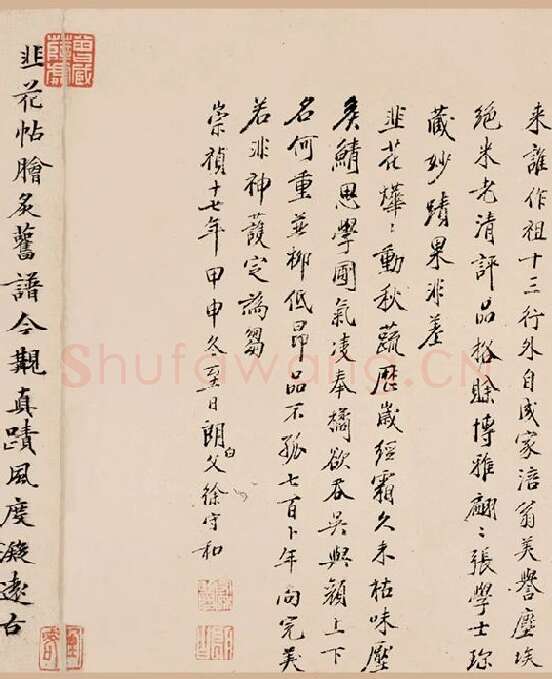 来誰作祖十三行外自成家涪翁美譽塵埃
絕米老清評品格賒博雅翩〻張學士珎
藏妙蹟果非差
韭花燁〻動秋蔬歷歲經霜久未枯味壓
矦鯖思學圃氣凌奉橘欲吞吳與顏上下
名何重並柳低昂品不孤七百卜年尚完美
若非神護定為芻
崇禎十七年甲申冬至日朗父徐守和
白
韭花帖膾炙舊譜今觀真蹟風度凝遠古
Shufawang.CN